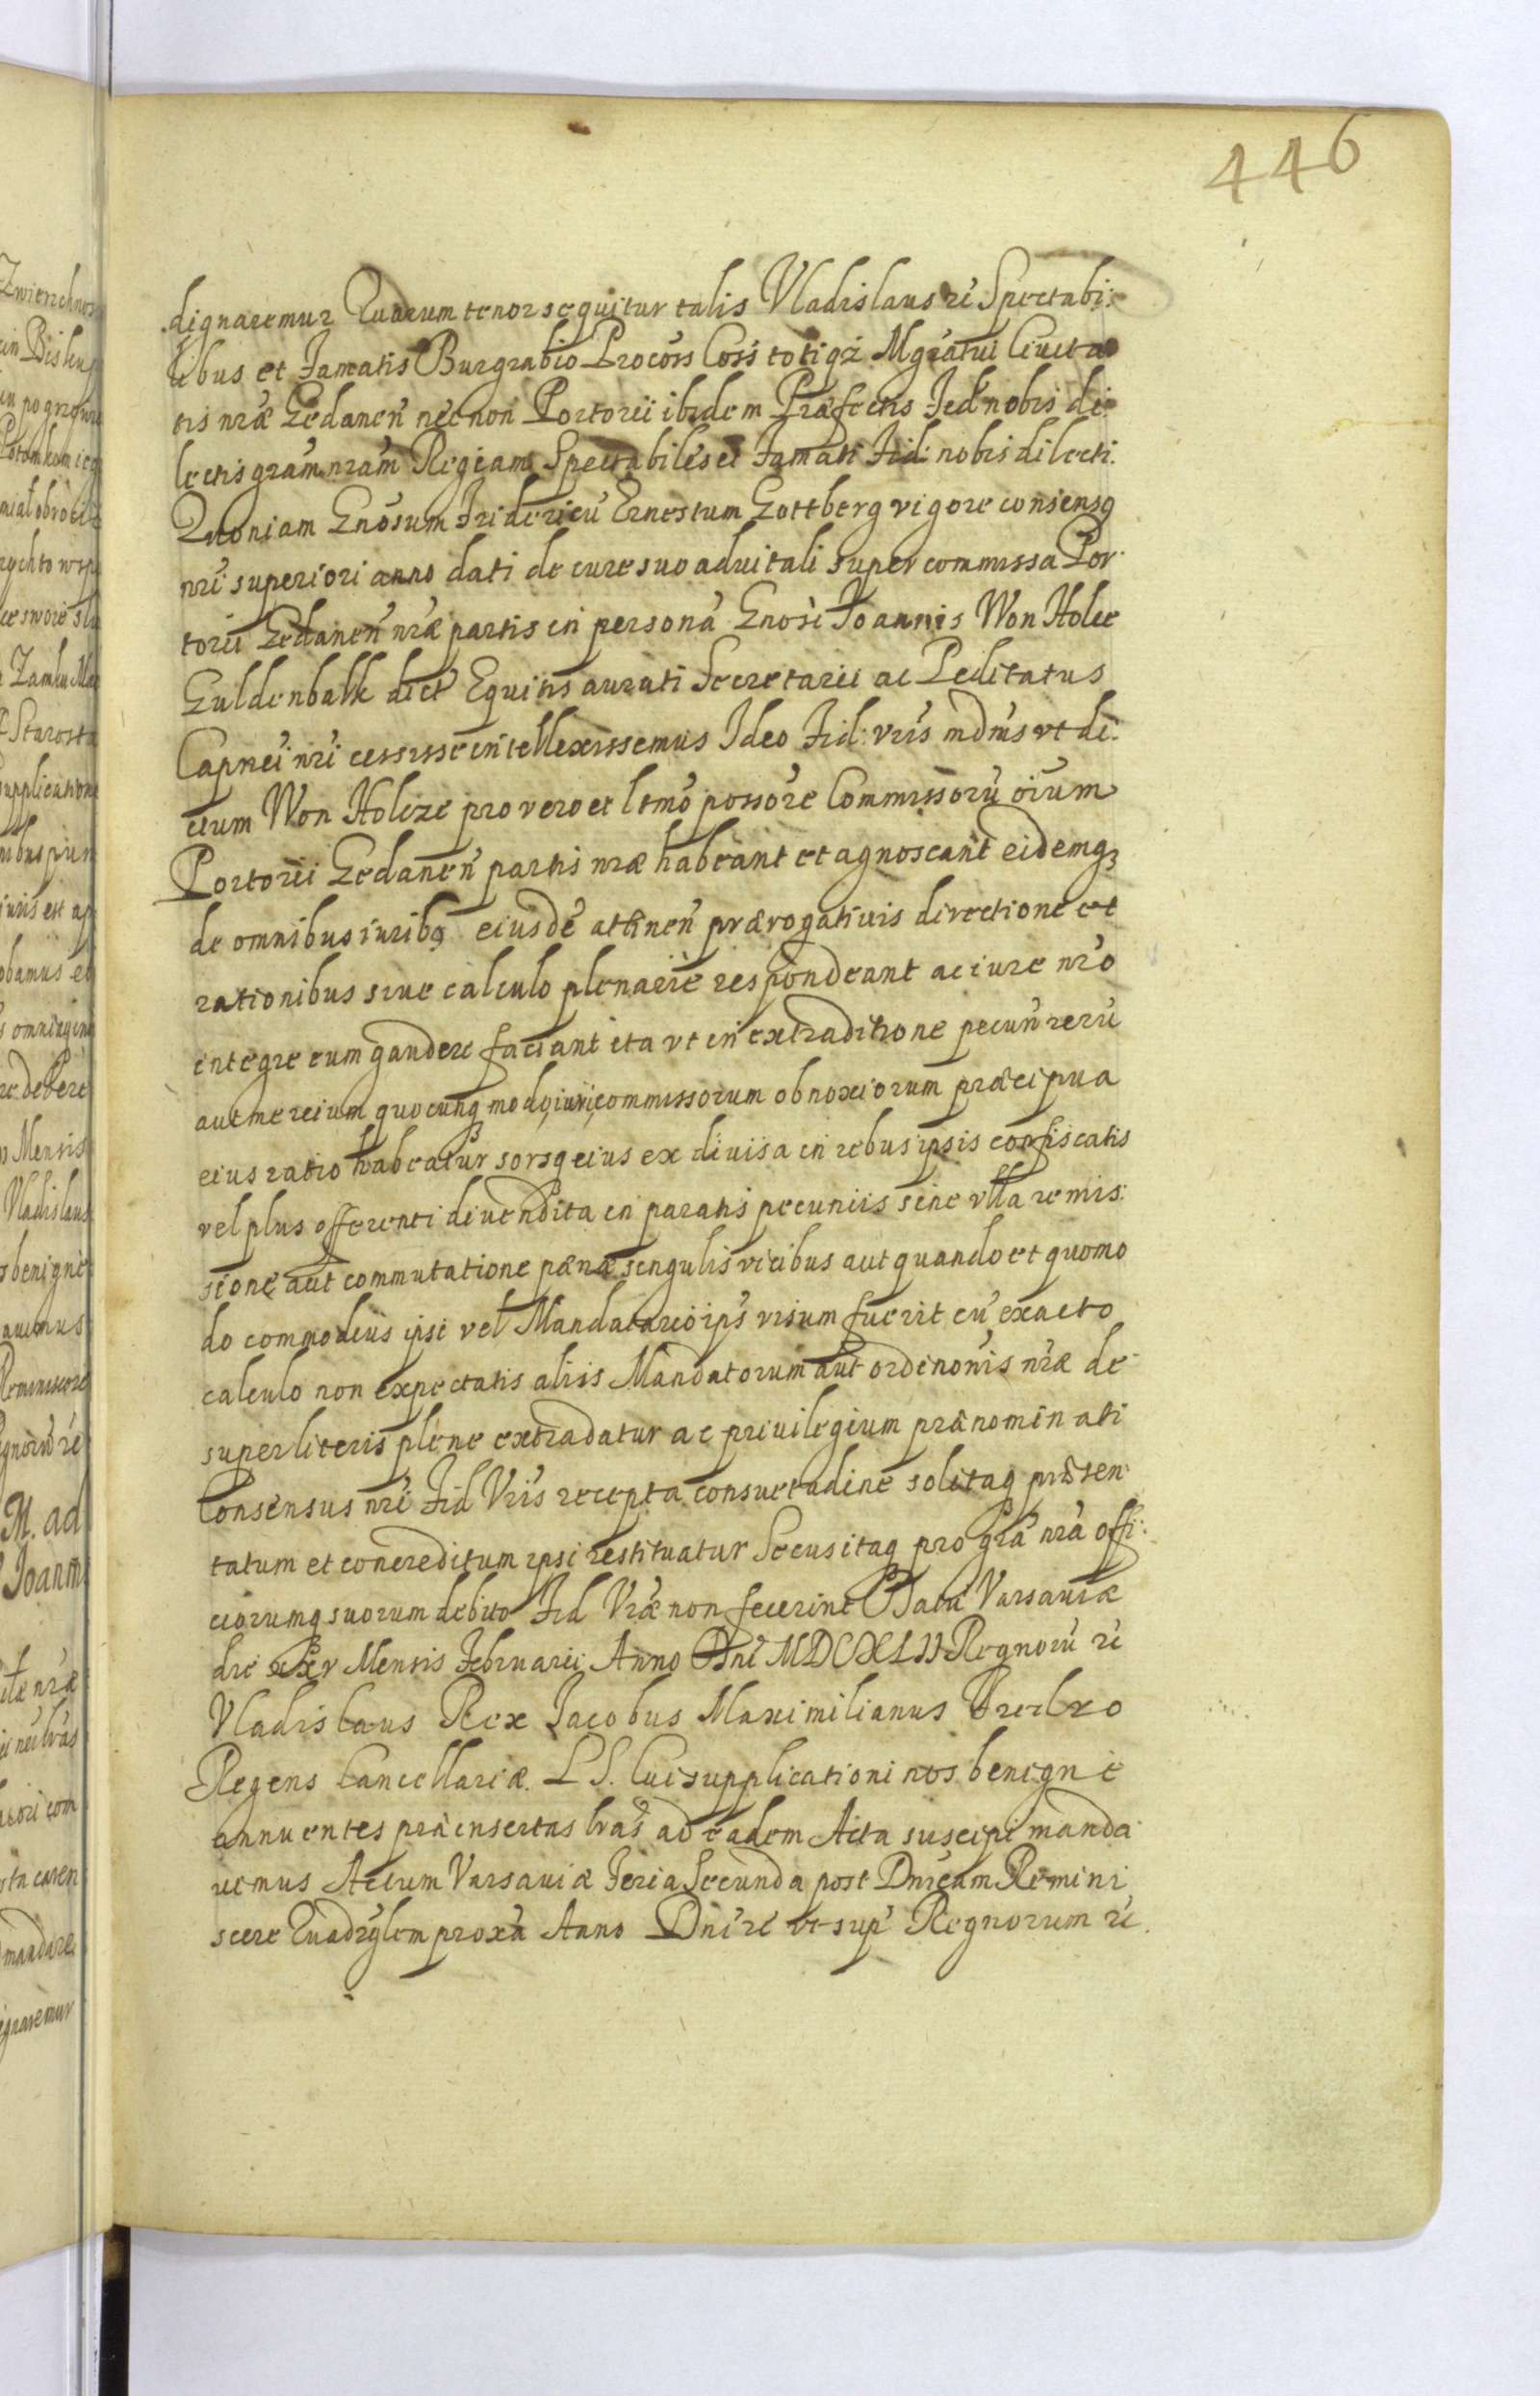 446
dignaremur Quarum tenor sequitur talis Vladislaus rć Spectabi:
libus et Famatis Burgrabio Procoss Coss totiqz Mgratui Ciuita
tis nræ Gedanen necnon Portorii ibidem Præfectis Fid nobis di:
lectis gram nram Regiam Spectabiles et Famati Fid: nobis dilecti.
Quoniam Gnosum Fridericu Ernestum Gottberg vigore consensq
nri superiori anno dati de iure suo aduitali super commissa Por:
torii Gedanen nræ partis in persona Gnosi Joannis Won Holce
Guldenbalk dict Equitis aurati Secretarii ac Peditatus
Capnei nri cessisse intellexissemus Ideo Fid: vris mdmus vt di:
ctum Won Holcze pro vero et ltmo possore Commissoru oium
Portorii Gedanen partis nræ habeant et agnoscant eidemqz
de omnibus iuribq eiusde attinen prærogatiuis directione et
rationibus siue calculo plenarie respondeant ac iure nro
integre eum gaudere faciant ita vt in extraditione pecun reru
aut mercium quocunq modo iurii commissorum obnoxiorum præcipua
eius ratio habeatur sorsq eius ex diuisa in rebus ipsis confiscatis
vel plus offerenti diuendita in paratis pecuniis sine vlla remis:
sione aut commutatione pænæ singulis vicibus aut quando et quomo
do commodius ipsi vel Mandatario ips visum fuerit cu exacto
calculo non expectatis aliis Mandatorum aut ordinonis nræ de:
super literis plene extradatur ac priuilegium prænominati
Consensus nri Fid Vris recepta consuetudine solitaq præsen:
tatum et concreditum ipsi restituatur Secus itaq pro gra nra offi:
ciorumq suorum debito Fid Vræ non fecerint Data Varsauiæ
die Mensis Februarii Anno Dni MDCXLII Regnoru rć
Vladislaus Rex Jacobus Maximilianus Fredro
Regens Cancellariæ. L S. Cui supplicationi nos benigne
annuentes præinsertas lras ad eadem Acta suscipi manda
uimus Actum Varsauiæ Feria Secunda post Dnicam Remini
scere Quadrglem proxa Anno Dni rć vt sup Regnorum rć.